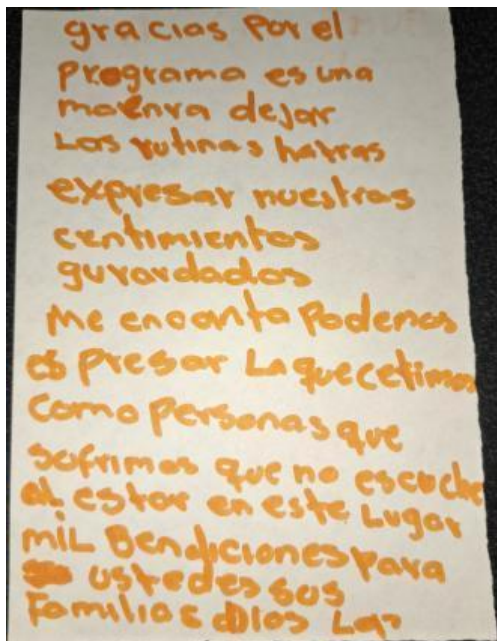 gracias por el
programa es una
maenra dejar
Las rutinas hatras
expresar nuestras
centimientos
gurardados
Me encanta Podemos
es presar La que cetimos
Como personas que
sofrimos que no escuche
al estar en este Lugar
mil Bendiciones para
ustedes sus
Familias Dios Las